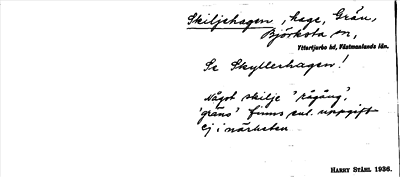 Skiljehagen, hage, Grän,
Björksta sn,
Yttertjurbo hd, Västmanlands län.
Se Skyllerhagen!
Något skilje 'rågång',
'gräns' finns enl. uppgift
ej i närheten
HARRY STÅHL 1936.